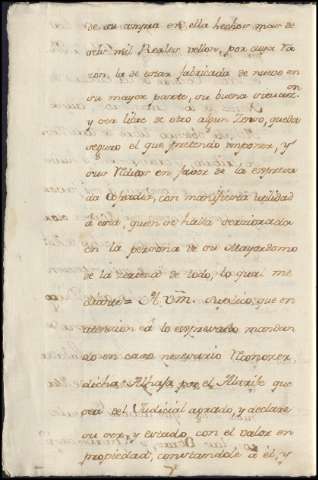 de su compra en ella hechos mas de
seis mil Reales vellon, por cuya ra
zon, la de estar fabricada de nuevo en
su mayor parte, su buena situazn.
y ser libre de otro algun Zenso, queda
seguro el que pretendo imponer, y
sus reditos en favor de la expresa
da Cofradia, con manifiesta utilidad
a esta, quien se halla serziorada
en la persona de su Mayordomo
de la zerteza de todo, lo que me
diante = A Vm. suplico, que en
atencion a lo expresado mandan
do en caso necesario reconozer
dicha Alhaja por el Alarife que
sea del Judicial agrado, y declare
su ser, y estado, con el valor en
propiedad, constandole a él, y